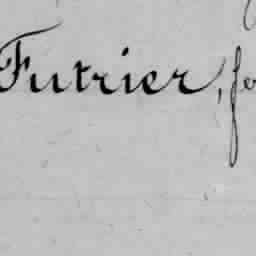 Futrier, fo